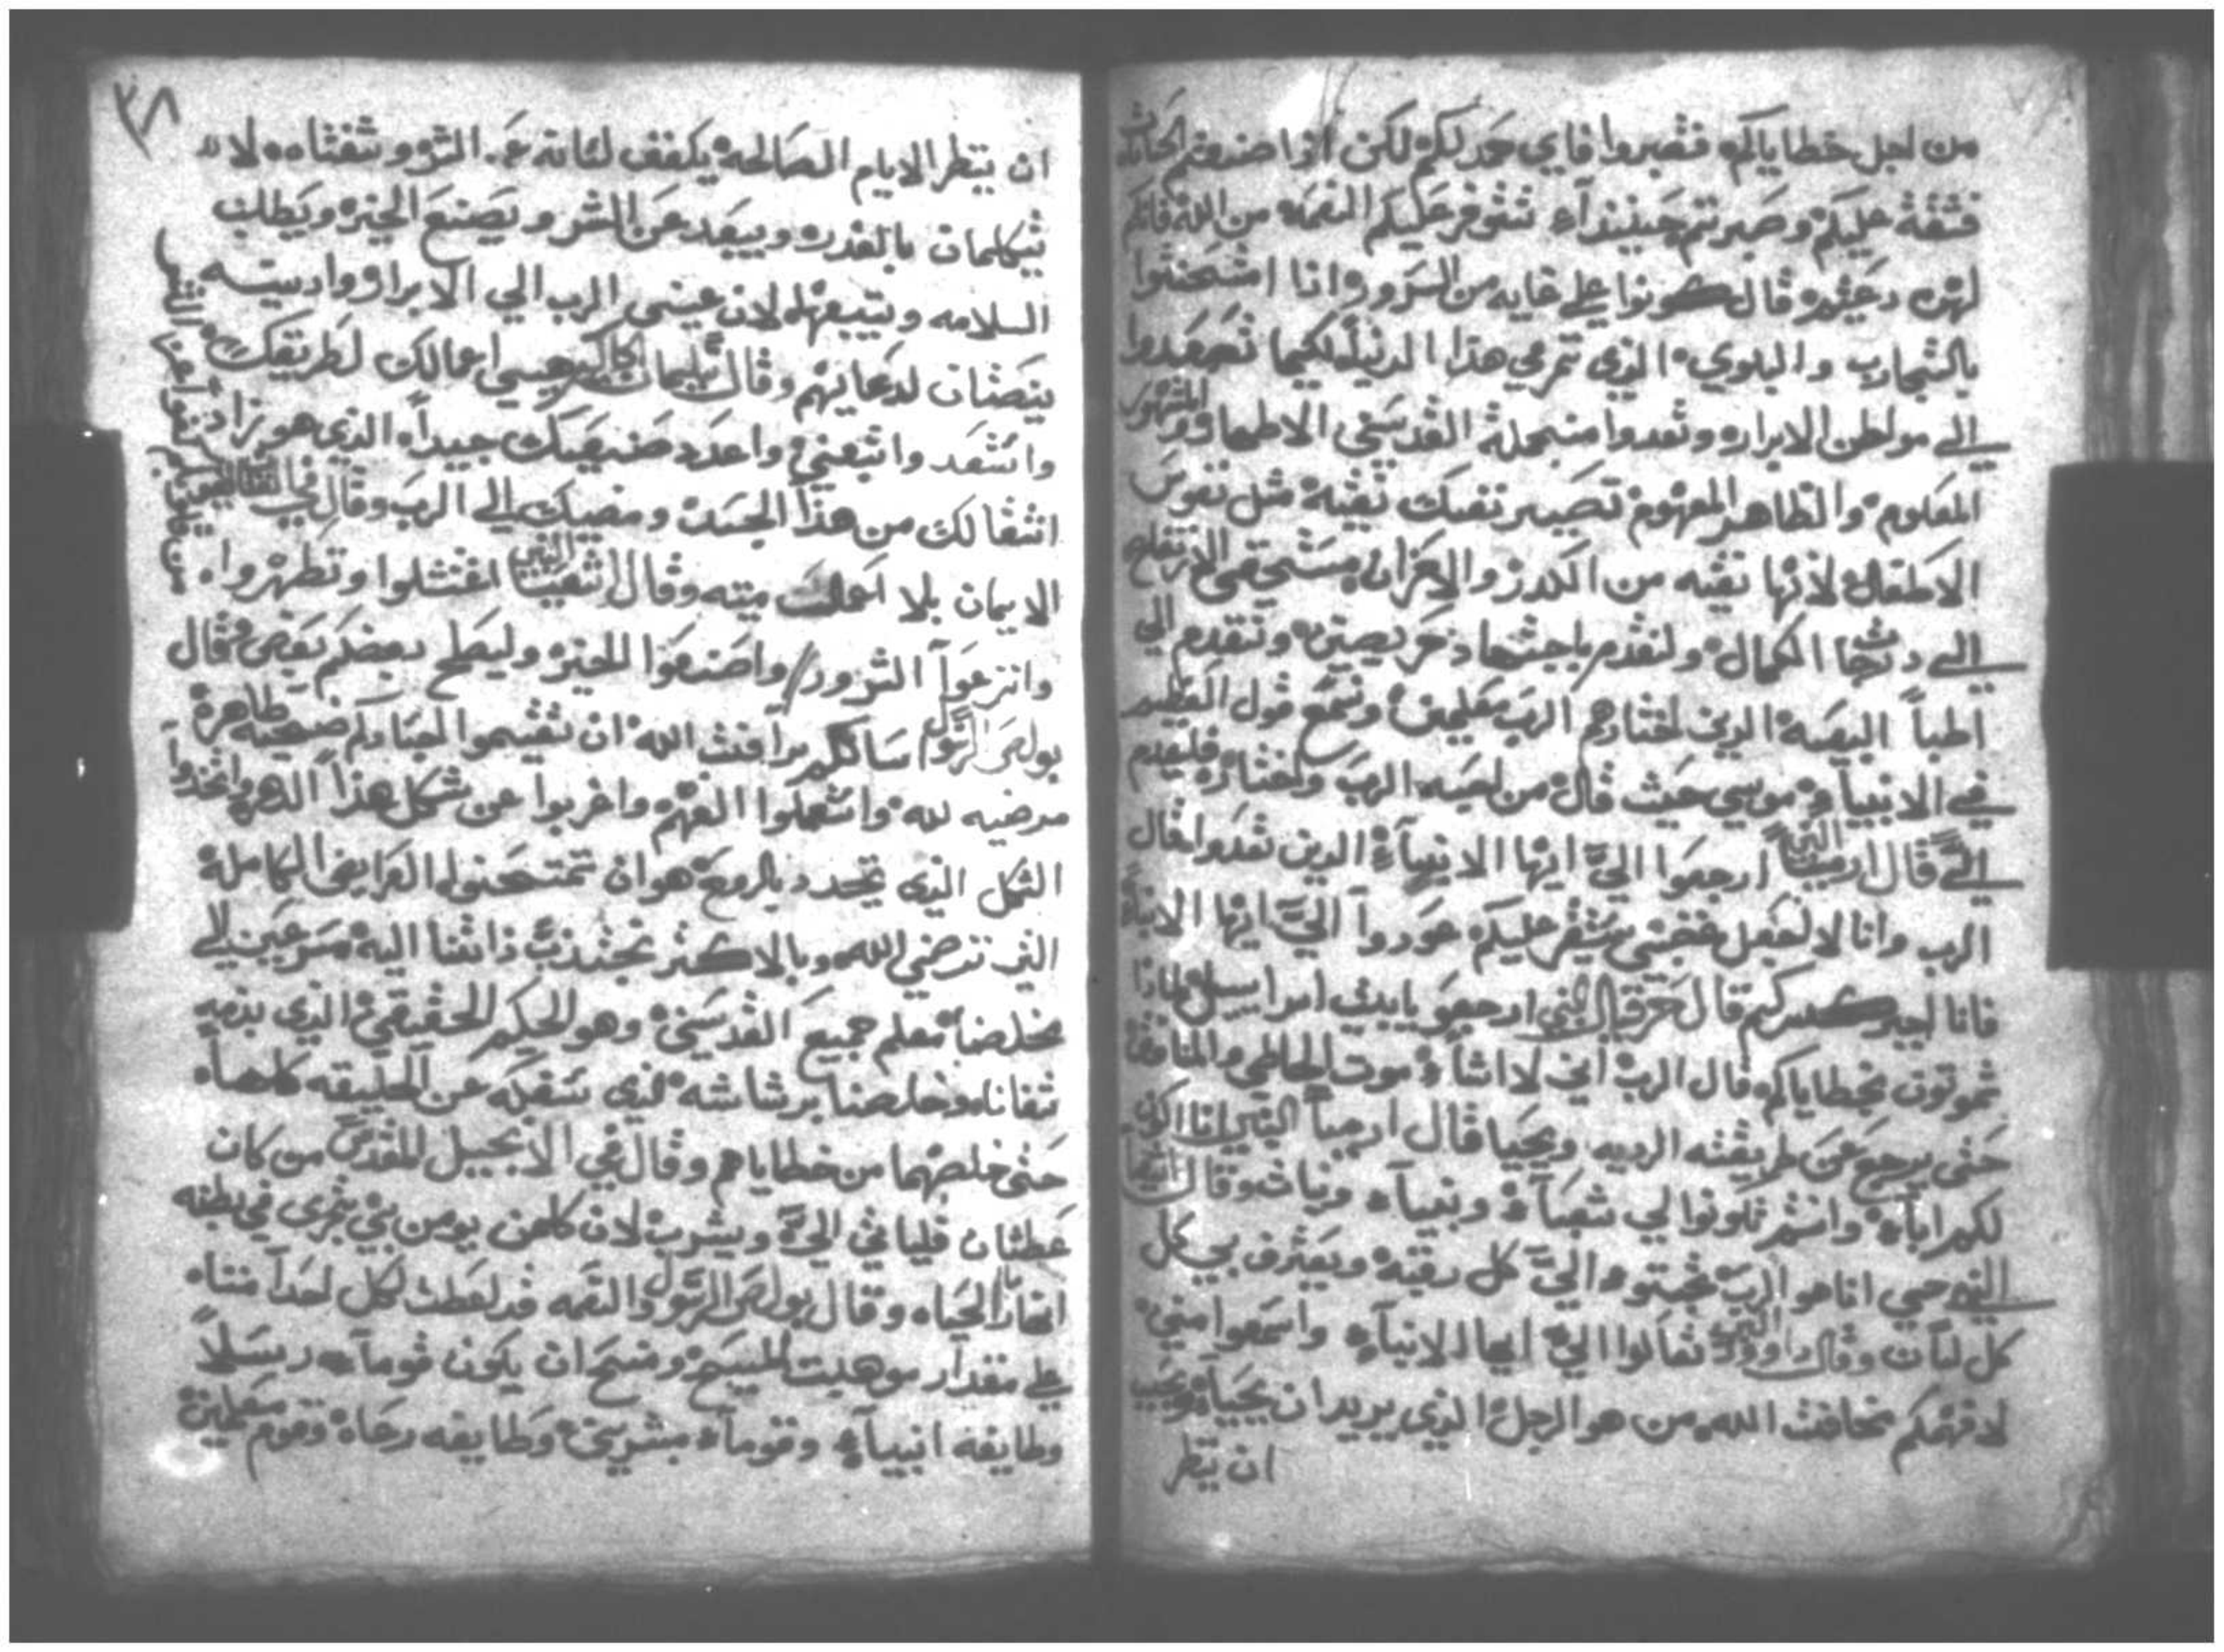 من اجل خطاياكم فتصبروا فاي حمد لكم لكن اذا صنعتم الحسنات
فشقة عليكم وصبرتم حينيذاً تتوفر عليكم النعمه من الله فانكم
لهذه دعيتم قال كونوا على غايه من السرور وانا امتحنتوا
بالتجارب والبلوي الذي تتري في هذا الدنيا لكيما تصعدوا
الي مواطن الابرار وتعدوا من جملة القديسين الاطهار
المعلوم والظاهر المفهوم تصير نفسك نقية مثل نفوس
الاطفال لانها نقيه من الكدر والاحزان مستحقين الارتفاع
الي درجة الكمال ولنقدم باجتهاد حريصين ونتقدم الي
اطبا البيعة الذين اختارهم الرب معلمين ونسمع قول العظيم
في الانبيا موسي حيث قال من احبه الرب واختاره فليقدم
اليَّ قال ارميا النبي ارجعوا اليَّ ايها الابناء الذين بعدوا قال
الرب وانا لا اجعل غضبي يستقر عليكم عودوا اليَّ ايها الابناء
فانا اجبر كسركم قال حزقيال النبي ارجعو يا بيت اسراييل لماذا
تموتون بخطاياكم قال الرب اني لا اشاء موت الخاطي والمنافق
حتي يرجع عن طريقته الرديه ويحيا قال ارميا النبي انا اكون
لكم اباً وانتم تكونوا لي شعباً وبنياً وبنات وقال اشعيا
النبي حي انا هو الرب تجتوا اليَّ كل ركبة ويعترف بي كل
كل لسان وقال داوود النبي تعالوا اليَّ ايها الابناء واسمعوا مني
لافهمكم مخافت الله من هو الرجل الذي يريد ان يحيا ويحب
ان ينظر
٣٨
ان ينظر الايام الصالحة يكفف لسانه عن الشر وشفتاه لا
تتكلمان بالغدر ويبعد عن الشر ويصنع الخير ويطلب
السلامه ويتبعها لان عيني الرب الي الابرار واذنيه
ينصتان لدعايهم وقال سليمان الحكيم هيي اعمالك لطريقك
واستعد واتبعني واعدد صنيعك جيداً الذي هو زاد
انتقالك من هذا الجسد ومضيك الي الرب وقال
الايمان بلا اعمال ميته وقال اشعيا النبي اغتسلوا وتطهروا
وانزعوا الشرور واصنعوا الخير وليصطلح بعضكم بعض وقال
بولص الرسول سالكم برافت الله ان تقيموا اجسادكم ضحية طاهرة
مرضيه لله واستعملوا الفهم واغربوا عن شكل هذا الدهر واتخذوا
الشكل الذي يتجدد بالروح هو ان تمتحنوا الفرايض الكاملة
التي ترضي الله وبالاكثر تجتذب ذاتنا اليه مسرعين الي
مخلصنا معلم جميع القديسين وهو الحكيم الحقيقي الذي بدمه
شفانا وخلصنا برشاشه الذي سفكه عن الخليقه كلها
حتي خلصهما من خطاياهم وقال في الانجيل المقدس من كان
عطشان فلياتي اليَّ ويشرب لان كلمن يومن بي تجري في بطنه
انهار الحياه وقال بولص الرسول والنعمه قد اعطت لكل احداً منا
علي مقدار موهبت المسيح ومنح ان يكون قوماً رسلاً
وطايفه انبياء وقوماً مبشرين وطايفه رعاة وقوم معلمين